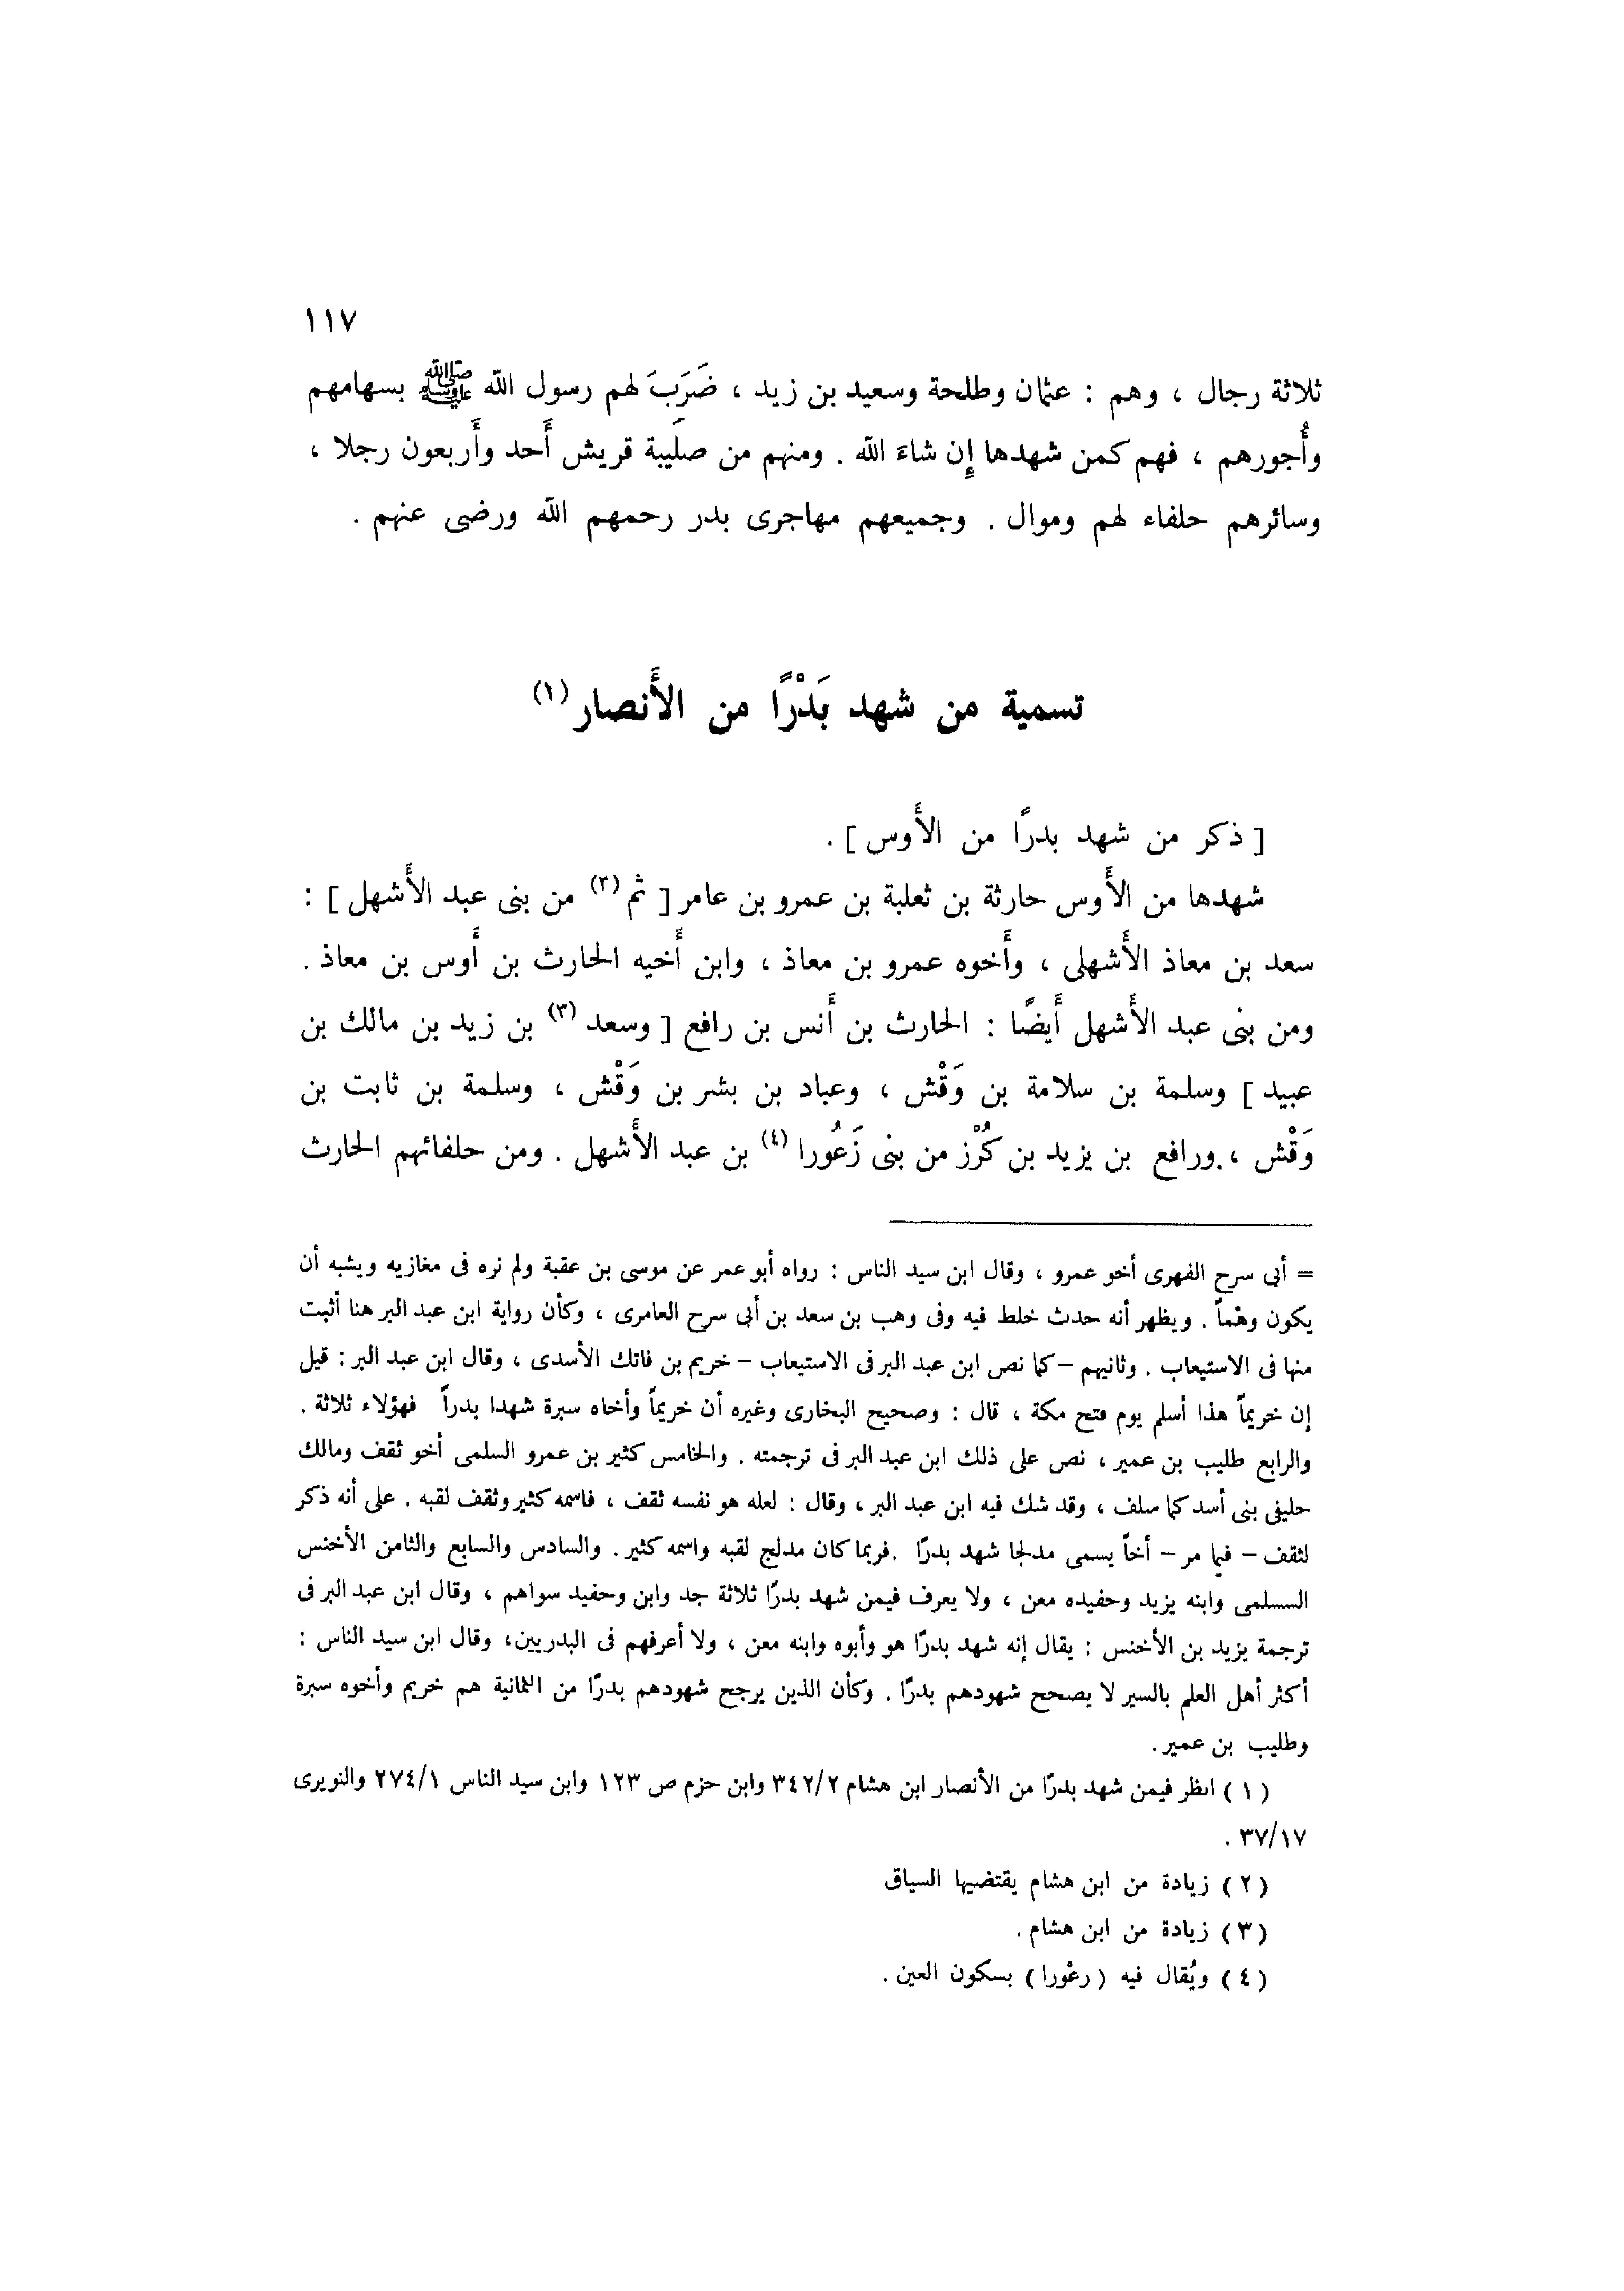 ١١٧
ثلاثة رجال ، وهم : عثمان وطلحة وسعيد بن زيد ، ضَرَبَ لهم رسول الله ﷺ بسهامهم
وأُجورهم ، فهم كمن شهدها إن شاءَ الله . ومنهم من صلَيبة قريش أَحد وأَربعون رجلا ،
وسائرهم حلفاء لهم وموال . وجميعهم مهاجرى بدر رحمهم الله ورضى عنهم .
تسمية من شهد بَدْرًا من الأَنصار (١)
[ ذكر من شهد بدرًا من الأَوس ] .
شهدها من الأَوس حارثة بن ثعلبة بن عمرو بن عامر [ ثم (٢) من بنى عبد الأَشهل ] :
سعد بن معاذ الأَشهلى ، وأَخوه عمرو بن معاذ ، وابن أَخيه الحارث بن أَوس بن معاذ .
ومن بنى عبد الأَشهل أَيضًا : الحارث بن أَنس بن رافع [ وسعد (٣) بن زيد بن مالك بن
عبيد ] وسلمة بن سلامة بن وَقْش ، وعباد بن بشر بن وَقْش ، وسلمة بن ثابت بن
وَقْش ، ورافع بن يزيد بن كُرْز من بنى زَعُورا (٤) بن عبد الأَشهل . ومن حلفائهم الحارث
= أبى سرح الفهرى أخو عمرو ، وقال ابن سيد الناس : رواه أبو عمر عن موسى بن عقبة ولم نره فى مغازيه ويشبه أن
يكون وهْماً . ويظهر أنه حدث خلط فيه وفى وهب بن سعد بن أبى سرح العامرى ، وكأن رواية ابن عبد البر هنا أثبت
منها فى الاستيعاب . وثانيهم – كما نص ابن عبد البر فى الاستيعاب – خريم بن فاتك الأسدى ، وقال ابن عبد البر : قيل
إن خريماً هذا أسلم يوم فتح مكة ، قال : وصحيح البخارى وغيره أن خريماً وأخاه سبرة شهدا بدراً فهؤلاء ثلاثة .
والرابع طليب بن عمير ، نص على ذلك ابن عبد البر فى ترجمته . والخامس كثير بن عمرو السلمى أخو ثقف ومالك
حليفى بنى أسد كما سلف ، وقد شك فيه ابن عبد البر ، وقال : لعله هو نفسه ثقف ، فاسمه كثير وثقف لقبه . على أنه ذكر
لثقف – فيما مر – أخاً يسمى مدلجا شهد بدرًا . فربما كان مدلج لقبه واسمه كثير . والسادس والسابع والثامن الأخنس
السلمى وابنه يزيد وحفيده معن ، ولا يعرف فيمن شهد بدرًا ثلاثة جد وابن وحفيد سواهم ، وقال ابن عبد البر فى
ترجمة يزيد بن الأخنس : يقال إنه شهد بدرًا هو وأبوه وابنه معن ، ولا أعرفهم فى البدريين، وقال ابن سيد الناس :
أكثر أهل العلم بالسير لا يصحح شهودهم بدرًا . وكأن الذين يرجح شهودهم بدرًا من الثمانية هم خريم وأخوه سبرة
وطليب بن عمير .
( ١ ) انظر فيمن شهد بدرًا من الأنصار ابن هشام ٣٤٢/٢ وابن حزم ص ١٢٣ وابن سيد الناس ٢٧٤/١ والنويرى
٣٧/١٧ .
( ٢ ) زيادة من ابن هشام يقتضيها السياق
( ٣ ) زيادة من ابن هشام .
( ٤ ) ويُقال فيه ( رعْورا ) بسكون العين .